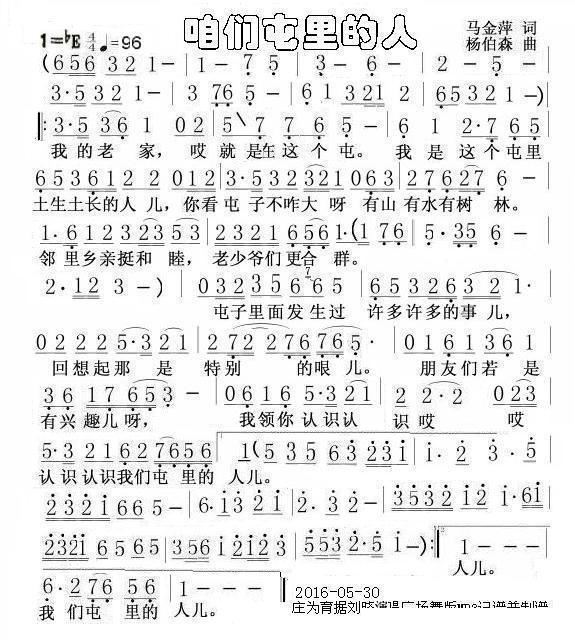 咱们屯里的人
1=♭E 4/4 ♩=96
马金萍 词
杨伯森 曲
(6 5 6 3 2 1 - | 1 - 7 5 | 3 - 6 - | 2 - 5 - |
3·5 3 2 1 - | 3 7 6 5 - | 6 1 3 2 1 2 | 6 5 3 2 1 - )
3·5 3 6 1 0 2 | 5 \ 7 7 6 5 | 6 1 2·7 6 5
我的老 家， 哎就是在这个屯。 我是这个屯里
6 5 3 6 1 2 2 0 1 2 | 3·5 3 2 3 2 1 0 6 3 | 2 7 6 2 7 6
土生土长的人儿，你看屯子不咋大呀 有山有水有树 林。
1·6 1 2 3 2 3 5 3 | 2 3 2 1 6 5 6 1·( 1 7 6 | 5·3 5 6 -
邻里乡亲挺和 睦， 老少爷们更合 群。
2·1 2 3 - ) | 0 3 2 3 5 6 6 5 | 6 5 3 2 6 3 2 1
屯子里面发生过 许多许多的事儿，
0 2 2 2 5·3 2 1 | 2 2 2 7 2 7 6 5· | 0 1 6 1 3 6 1
回想起那 是 特别 的哏儿。 朋友们若 是
3 6 1 7 6 5 3 - | 0 6 1 6 5·3 2 1 | 2 2·2 0 2 3
有兴趣儿呀， 我领你认识认 识哎 哎
5·3 2 1 6 2 7 6 5 6 | 1 ( 5 3 5 6 3 2 3 5 | 1· 2 3·5
认识认识我们屯 里的 人儿。
2 3 2 1 6 6 5 - | 6·1 3 2 2 - | 3 5 3 2 1 2 1·6 1
2 3 2 1 6 5 6 5 - | 3 5 6 1 2 1 2 3 | 5 5 3 2·5 1 - ) :| 1 - - -
人儿。
6·2 7 6 5 6 | 1 - - -
我们屯 里的 人儿。
2016-05-30
庄为育据刘晓演唱广场舞版mp3记谱并制谱